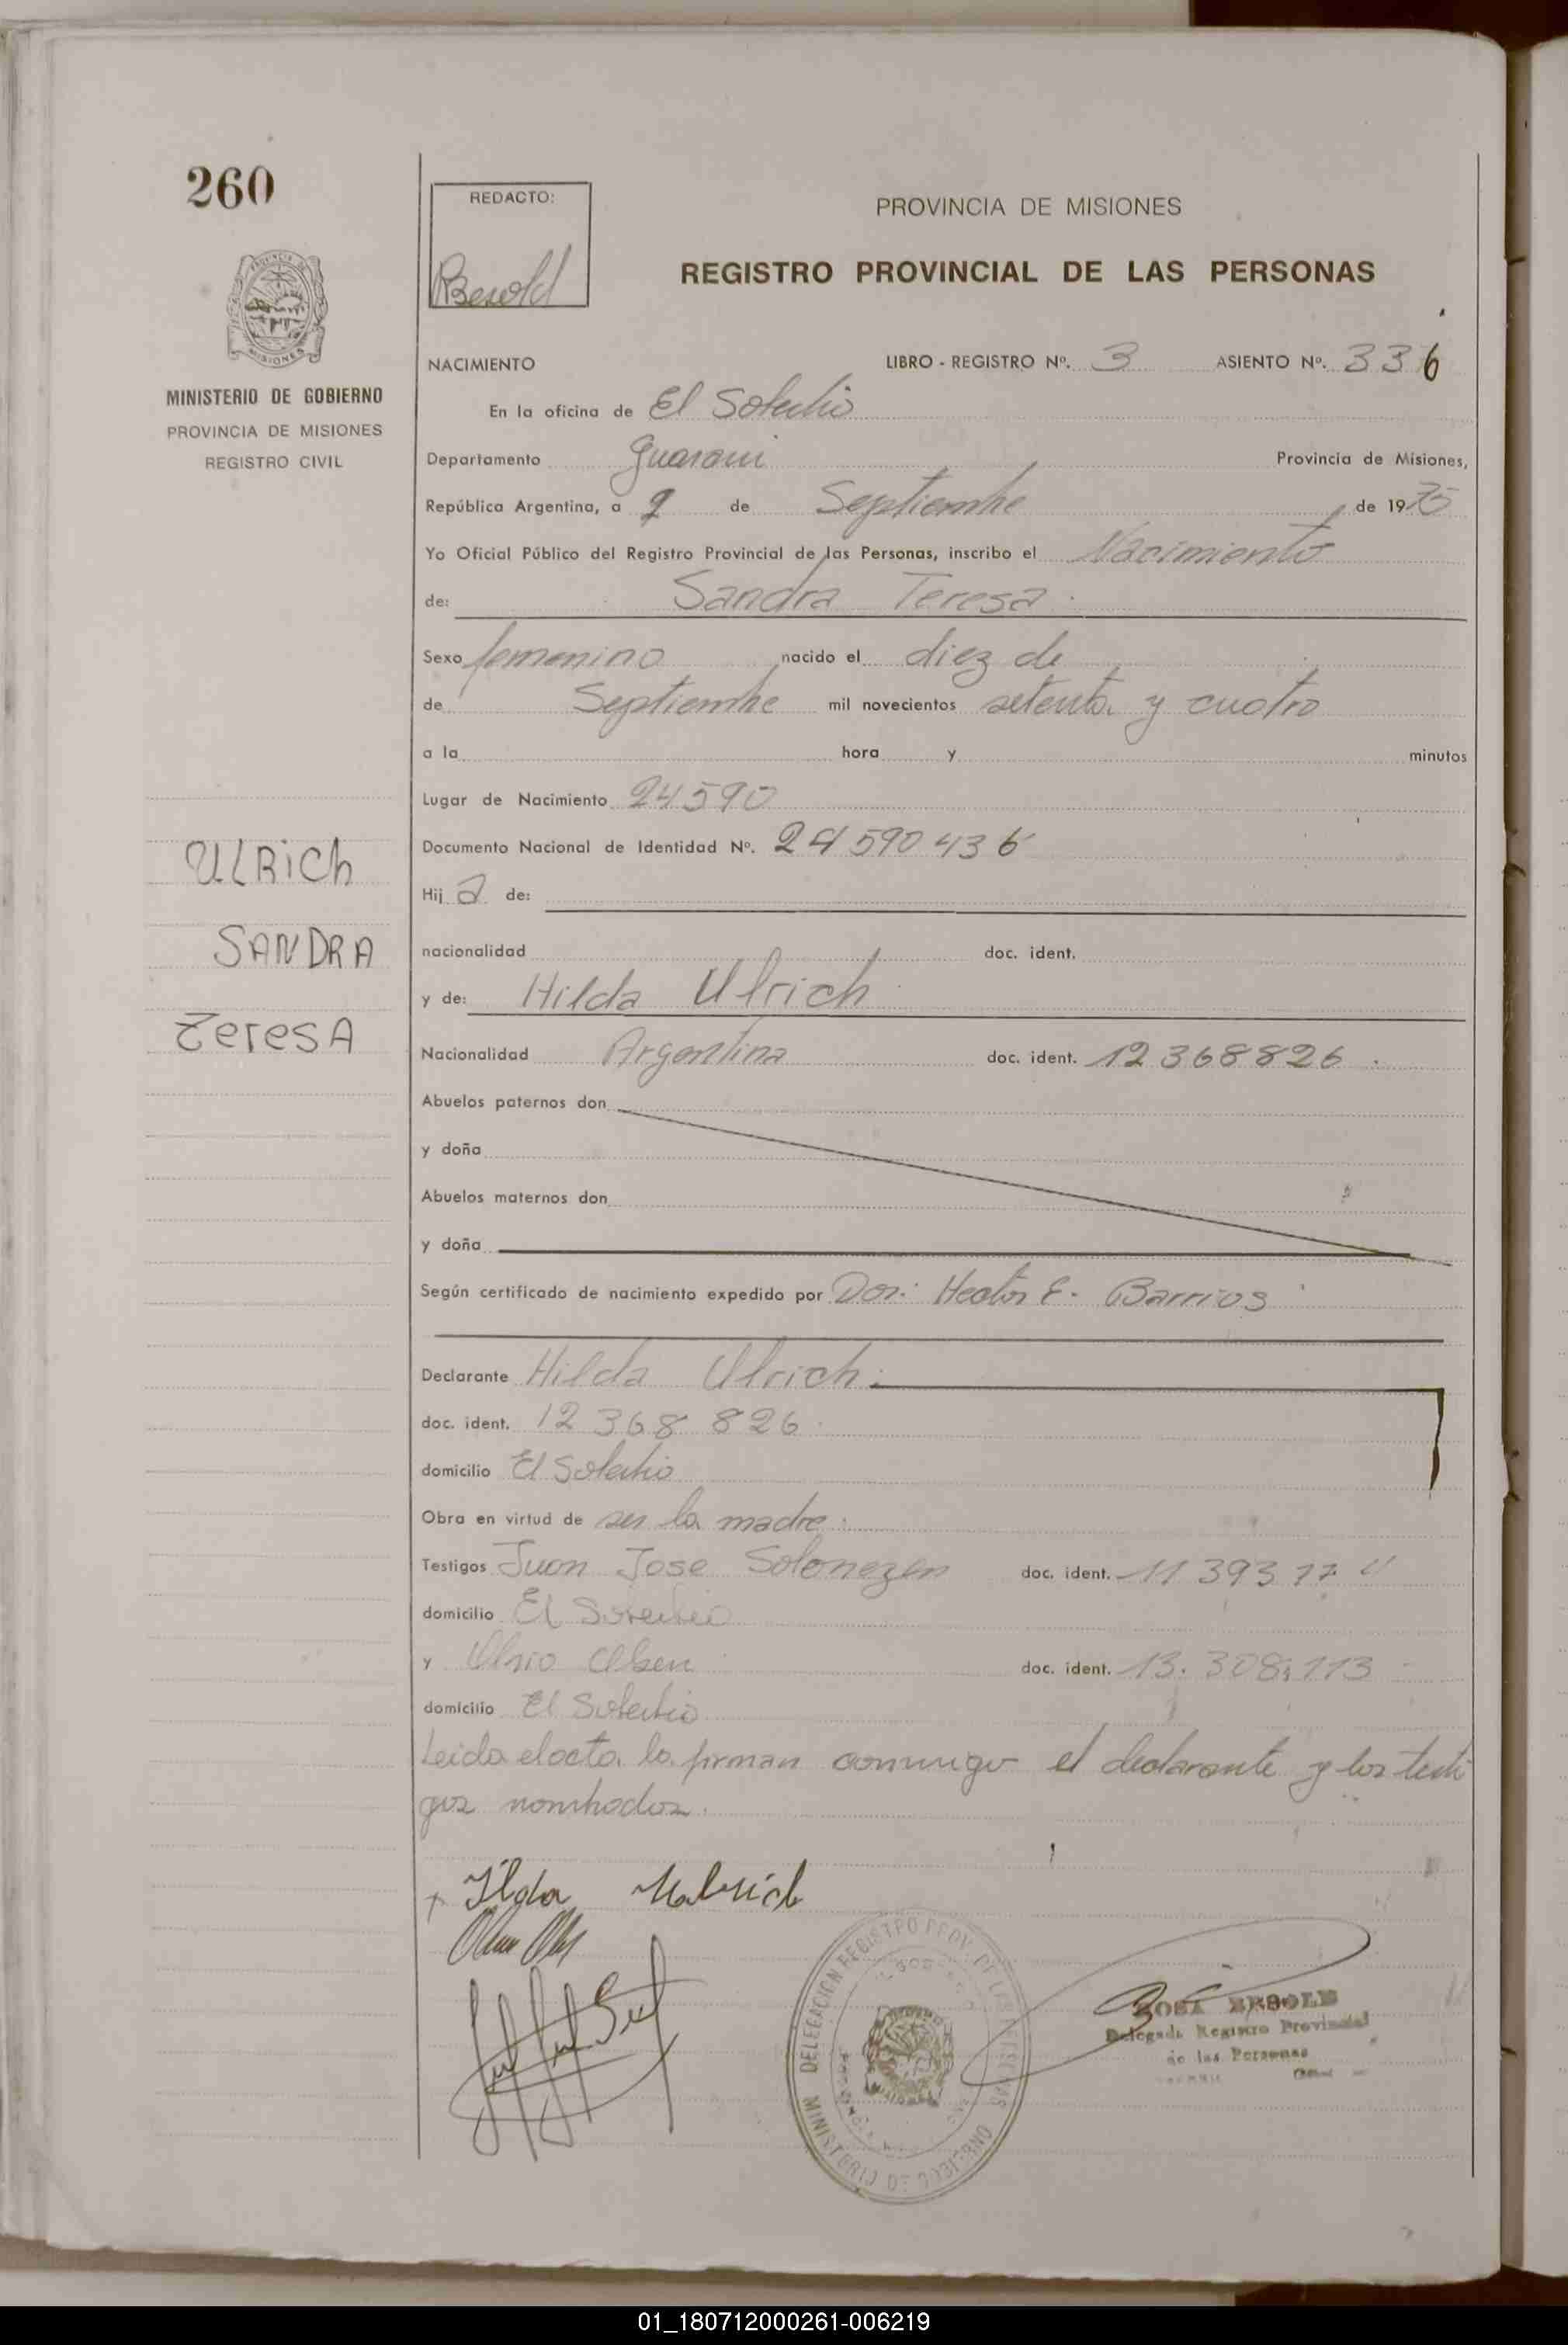 260
REDACTO:
Besold
PROVINCIA DE MISIONES
REGISTRO PROVINCIAL DE LAS PERSONAS
MISIONES
MINISTERIO DE GOBIERNO
PROVINCIA DE MISIONES
REGISTRO CIVIL
NACIMIENTO LIBRO - REGISTRO Nº. 3 ASIENTO Nº. 336
En la oficina de El Soberbio
Departamento Guarani Provincia de Misiones,
República Argentina, a 2 de Septiembre de 1975
Yo Oficial Público del Registro Provincial de las Personas, inscribo el Nacimiento
de: Sandra Teresa
Sexo femenino nacido el diez de
de Septiembre mil novecientos setenta y cuatro
a la hora y minutos
Lugar de Nacimiento 24590
Documento Nacional de Identidad Nº. 24 590 436
ULRICh
SANDRA
TeresA
Hij a de:
nacionalidad doc. ident.
y de: Hilda Ulrich
Nacionalidad Argentina doc. ident. 12 368 826.
Abuelos paternos don
y doña
Abuelos maternos don
y doña
Según certificado de nacimiento expedido por Dor: Hector E. Barrios
Declarante Hilda Ulrich.
doc. ident. 12 368 826.
domicilio El Soberbio
Obra en virtud de ser la madre.
Testigos Juan Jose doc. ident. 11 393 17
domicilio El Soberbio
y doc. ident. 13. 308.113
domicilio El Soberbio
Leida el acta la firman conmigo el declarante y los testi
gos nombrados.
+ Ilda
DELEGACION REGISTRO PROV. DE LAS PERSONAS
MINISTERIO DE GOBIERNO
ROSA BESOLD
Delegada Registro Provincial
de las Personas
01_180712000261-006219